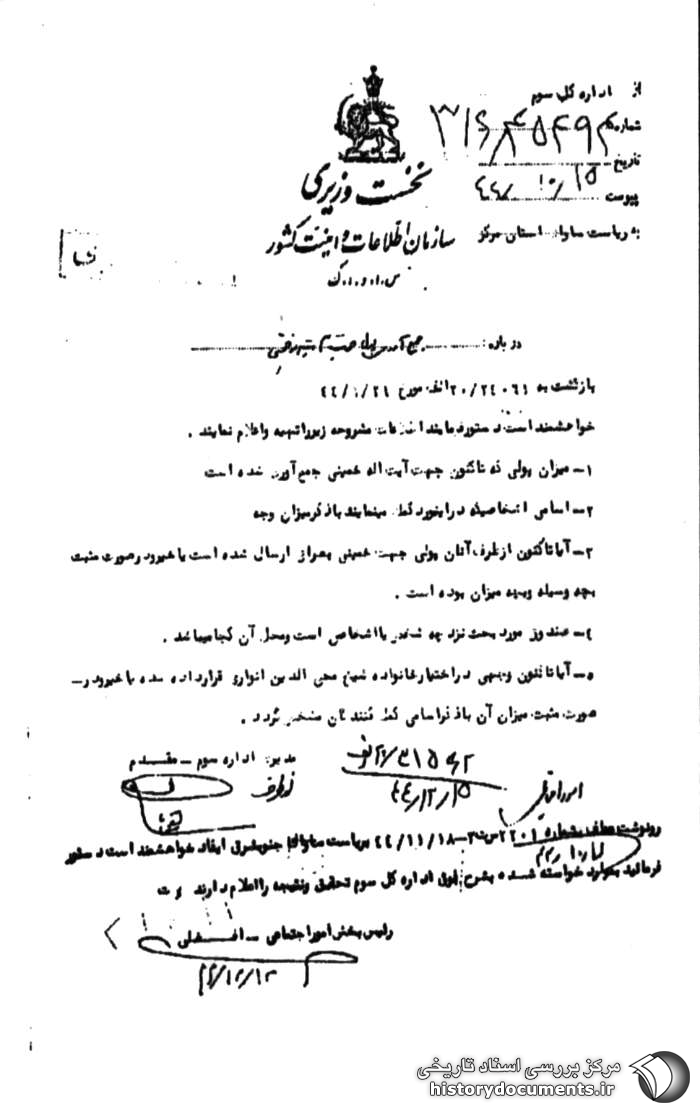 از اداره کل سوم
شماره
تاریخ
پیوست ۴۴/۱۰/۱۵
به ریاست ساواک استان مرکز
نخست وزیری
سازمان اطلاعات و امنیت کشور
س.ا.و.ا.ک
درباره: جمع آوری پول جهت
بازگشت به ۲۰/۲۴۰۶۱ الف مورخ
خواهشمند است دستور فرمایند اطلاعات مشروحه زیر را تهیه و اعلام نمایند .
۱- میزان پولی که تاکنون جهت آیت اله خمینی جمع آوری شده است
۲- اسامی اشخاصیکه در اینمورد کمک مینمایند با ذکر میزان وجه
۳- آیا تاکنون از طرف آنان پولی جهت خمینی بعراق ارسال شده است یا خیر و در صورت مثبت
بچه وسیله و بچه میزان بوده است .
۴- صندوق مورد بحث نزد چه شخص یا اشخاص است و محل آن کجا میباشد .
۵- آیا تاکنون وجهی در اختیار خانواده شیخ محی الدین انواری قرار داده شده یا خیر و در-
صورت مثبت میزان آن با ذکر اسامی کمک کنندگان مشخص گردد .
مدیر کل اداره سوم - مقدم
از طرف
۴۴/۱۲/۱۵
رونوشت عطف بشماره ۴۴/۱۱/۱۸ بریاست ساواک جنوبشرق ایفاد خواهشمند است دستور
فرمائید بموارد خواسته شده بشرح فوق اداره کل سوم تحقیق و نتیجه را اعلام دارند
رئیس بخش امور اجتماعی - افضلی
۴۴/۱۲/۱۲
مرکز بررسی اسناد تاریخی
historydocuments.ir